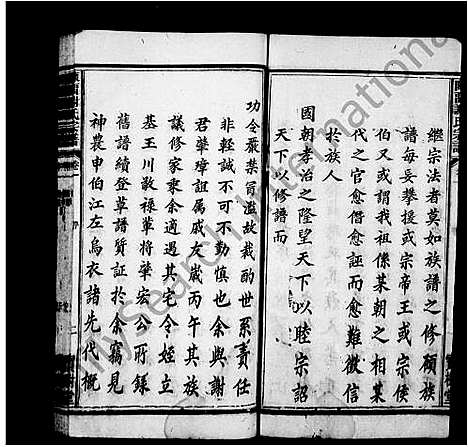 繼宗法者莫如族譜之修顧族
譜每妄攀援或宗帝王或宗侯
伯又或謂我祖係某朝之相某
代之官愈借愈誣而愈難徵信
於族人
國朝孝治之隆望天下以睦宗詔
天下以修譜而
功令嚴禁冒濫故裁酌世系責任
非輕誠不可不勤慎也余與謝
君肇璋誼屬戚友歲丙午其族
議修家乘余適過其宅令姪立
基王川敬祿輩將肇宏公所錄
舊譜續登草譜質証於余竊見
神農申伯江左烏衣諸先代概
MySearch International